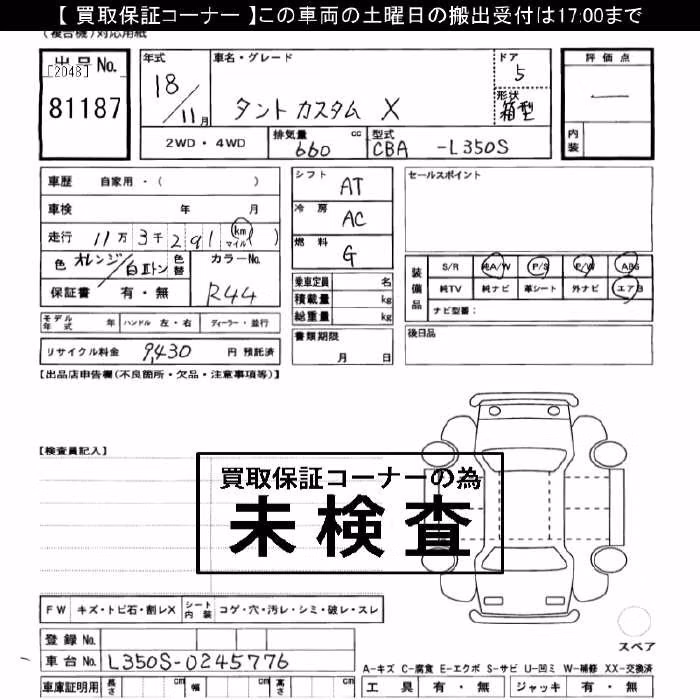 【 買取保証コーナー 】この車両の土曜日の搬出受付は17:00まで
(複合機)対応用紙
出品No.
[2048]
81187
年式
18/11月
車名・グレード
タント カスタム X
ドア
5
形状
箱型
2WD・4WD
排気量 cc
660
型式
CBA -L350S
評価点
—
内装
車歴 自家用・( )
車検 年 月
走行 11万3千291 km マイル ( )
色 オレンジ/白2トン 色替
カラーNo.
R44
保証書 有・無
モデル年式 年 ハンドル 左・右 ディーラー・並行
リサイクル料金 9,430 円 預託済
シフト AT
冷房 AC
燃料 G
乗車定員 名
積載量 kg
総重量 kg
書類期限
月 日
セールスポイント
装備品
S/R 純A/W P/S P/W ABS
純TV 純ナビ 革シート 外ナビ エアB
ナビ型番:
後日品
【出品店申告欄(不良箇所・欠品・注意事項等)】
【検査員記入】
買取保証コーナーの為
未検査
FW キズ・トビ石・割レX シート内装 コゲ・穴・汚レ・シミ・破レ・スレ
登録No.
車台No. L350S-0245776
車庫証明用 長さ cm 幅 cm 高さ cm
スペア
A-キズ C-腐食 E-エクボ S-サビ U-凹ミ W-補修 XX-交換済
工具 有・無 ジャッキ 有・無